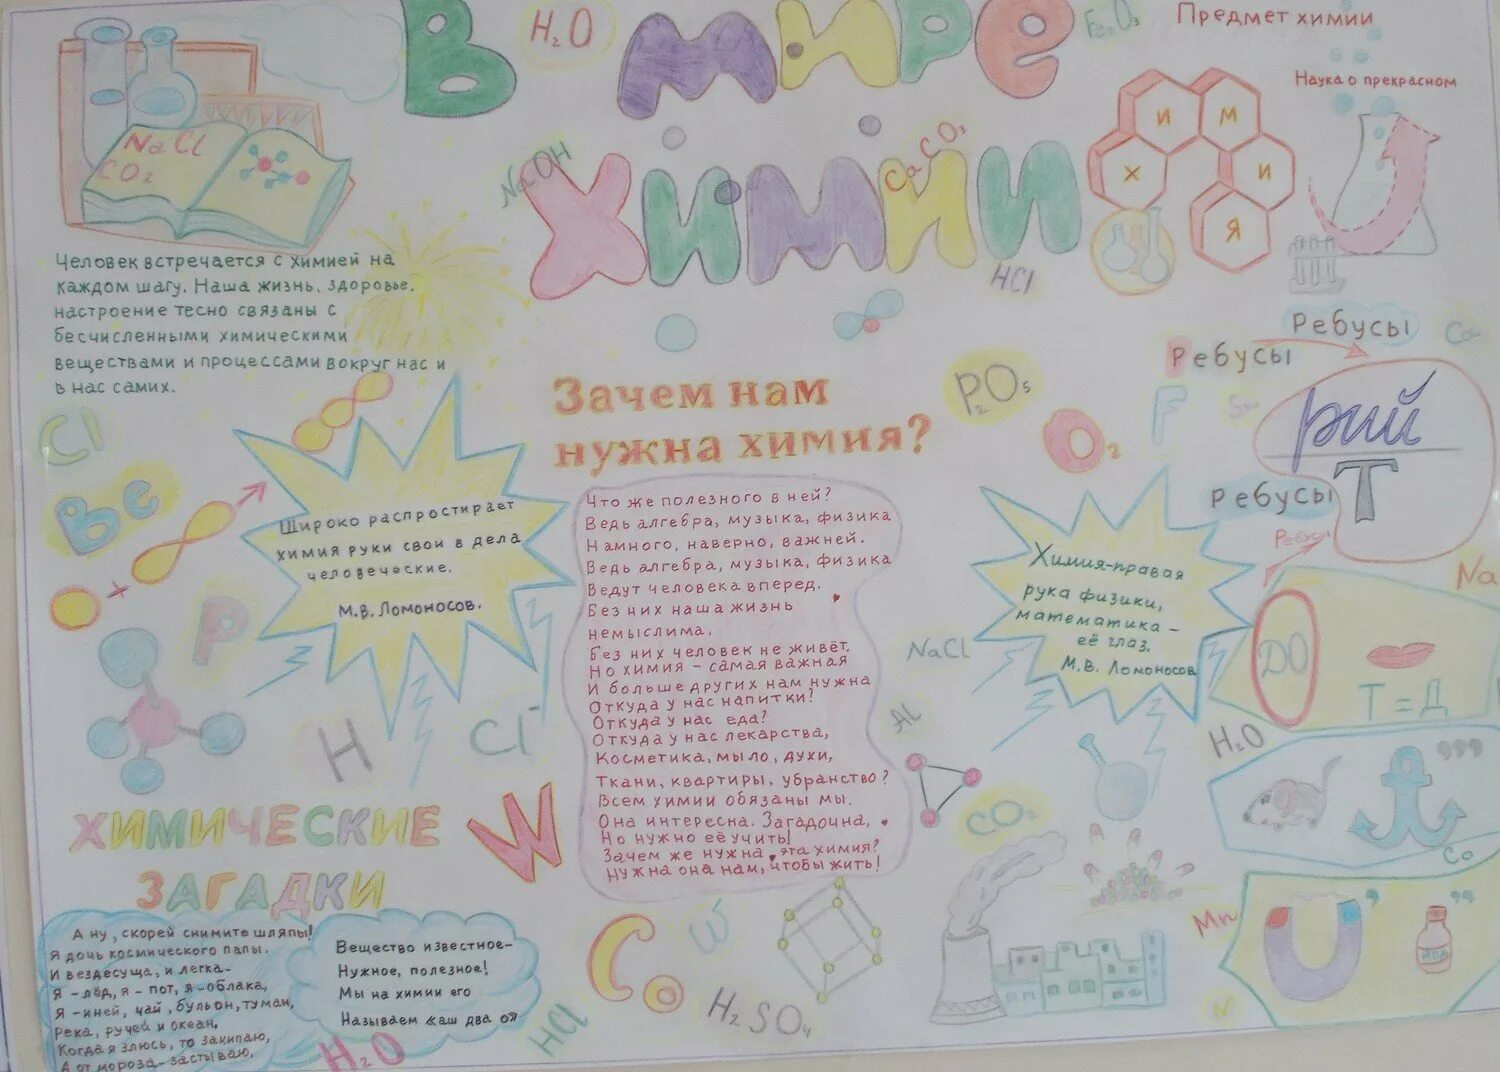 В мире
химии
H₂O
Fe₂O₃
Предмет химии
Наука о прекрасном
ХИМИЯ
NaCl
CO₂
NaOH
CaCO₃
HCl
Человек встречается с химией на
каждом шагу. Наша жизнь, здоровье,
настроение тесно связаны с
бесчисленными химическими
веществами и процессами вокруг нас и
в нас самих.
Cl
Be
P
H
Cl⁻
Широко распростирает
химия руки свои в дела
человеческие.
М.В. Ломоносов.
Зачем нам
нужна химия?
Что же полезного в ней?
Ведь алгебра, музыка, физика
Намного, наверно, важней.
Ведь алгебра, музыка, физика
Ведут человека вперед.
Без них наша жизнь
немыслима,
Без них человек не живёт.
Но химия – самая важная
И больше других нам нужна
Откуда у нас напитки?
Откуда у нас еда?
Откуда у нас лекарства,
Косметика, мыло, духи,
Ткани, квартиры, убранство?
Всем химии обязаны мы.
Она интересна. Загадочна,
Но нужно её учить!
Зачем же нужна, эта химия?
Нужна она нам, чтобы жить!
P₂O₅
O₂
F
Sn
Ca
Ребусы
Ребусы
Ребусы
Ребусы
рий
Т
Na
Химия-правая
рука физики,
математика –
её глаз.
М.В. Ломоносов
NaCl
Al
ДО
Т = Д
H₂O
,,,
Co
CO₂
Mn
,
,,
йод
N
ХИМИЧЕСКИЕ
ЗАГАДКИ
W
А ну, скорей снимите шляпы!
Я дочь космического папы.
И вездесуща, и легка–
Я – лёд, я – пот, я – облака,
Я – иней, чай, бульон, туман,
Река, ручей и океан.
Когда я злюсь, то закипаю,
А от мороза – застываю.
Вещество известное–
Нужное, полезное!
Мы на химии его
Называем «аш два о»
H₂O
HCl
Co
W
H₂SO₄